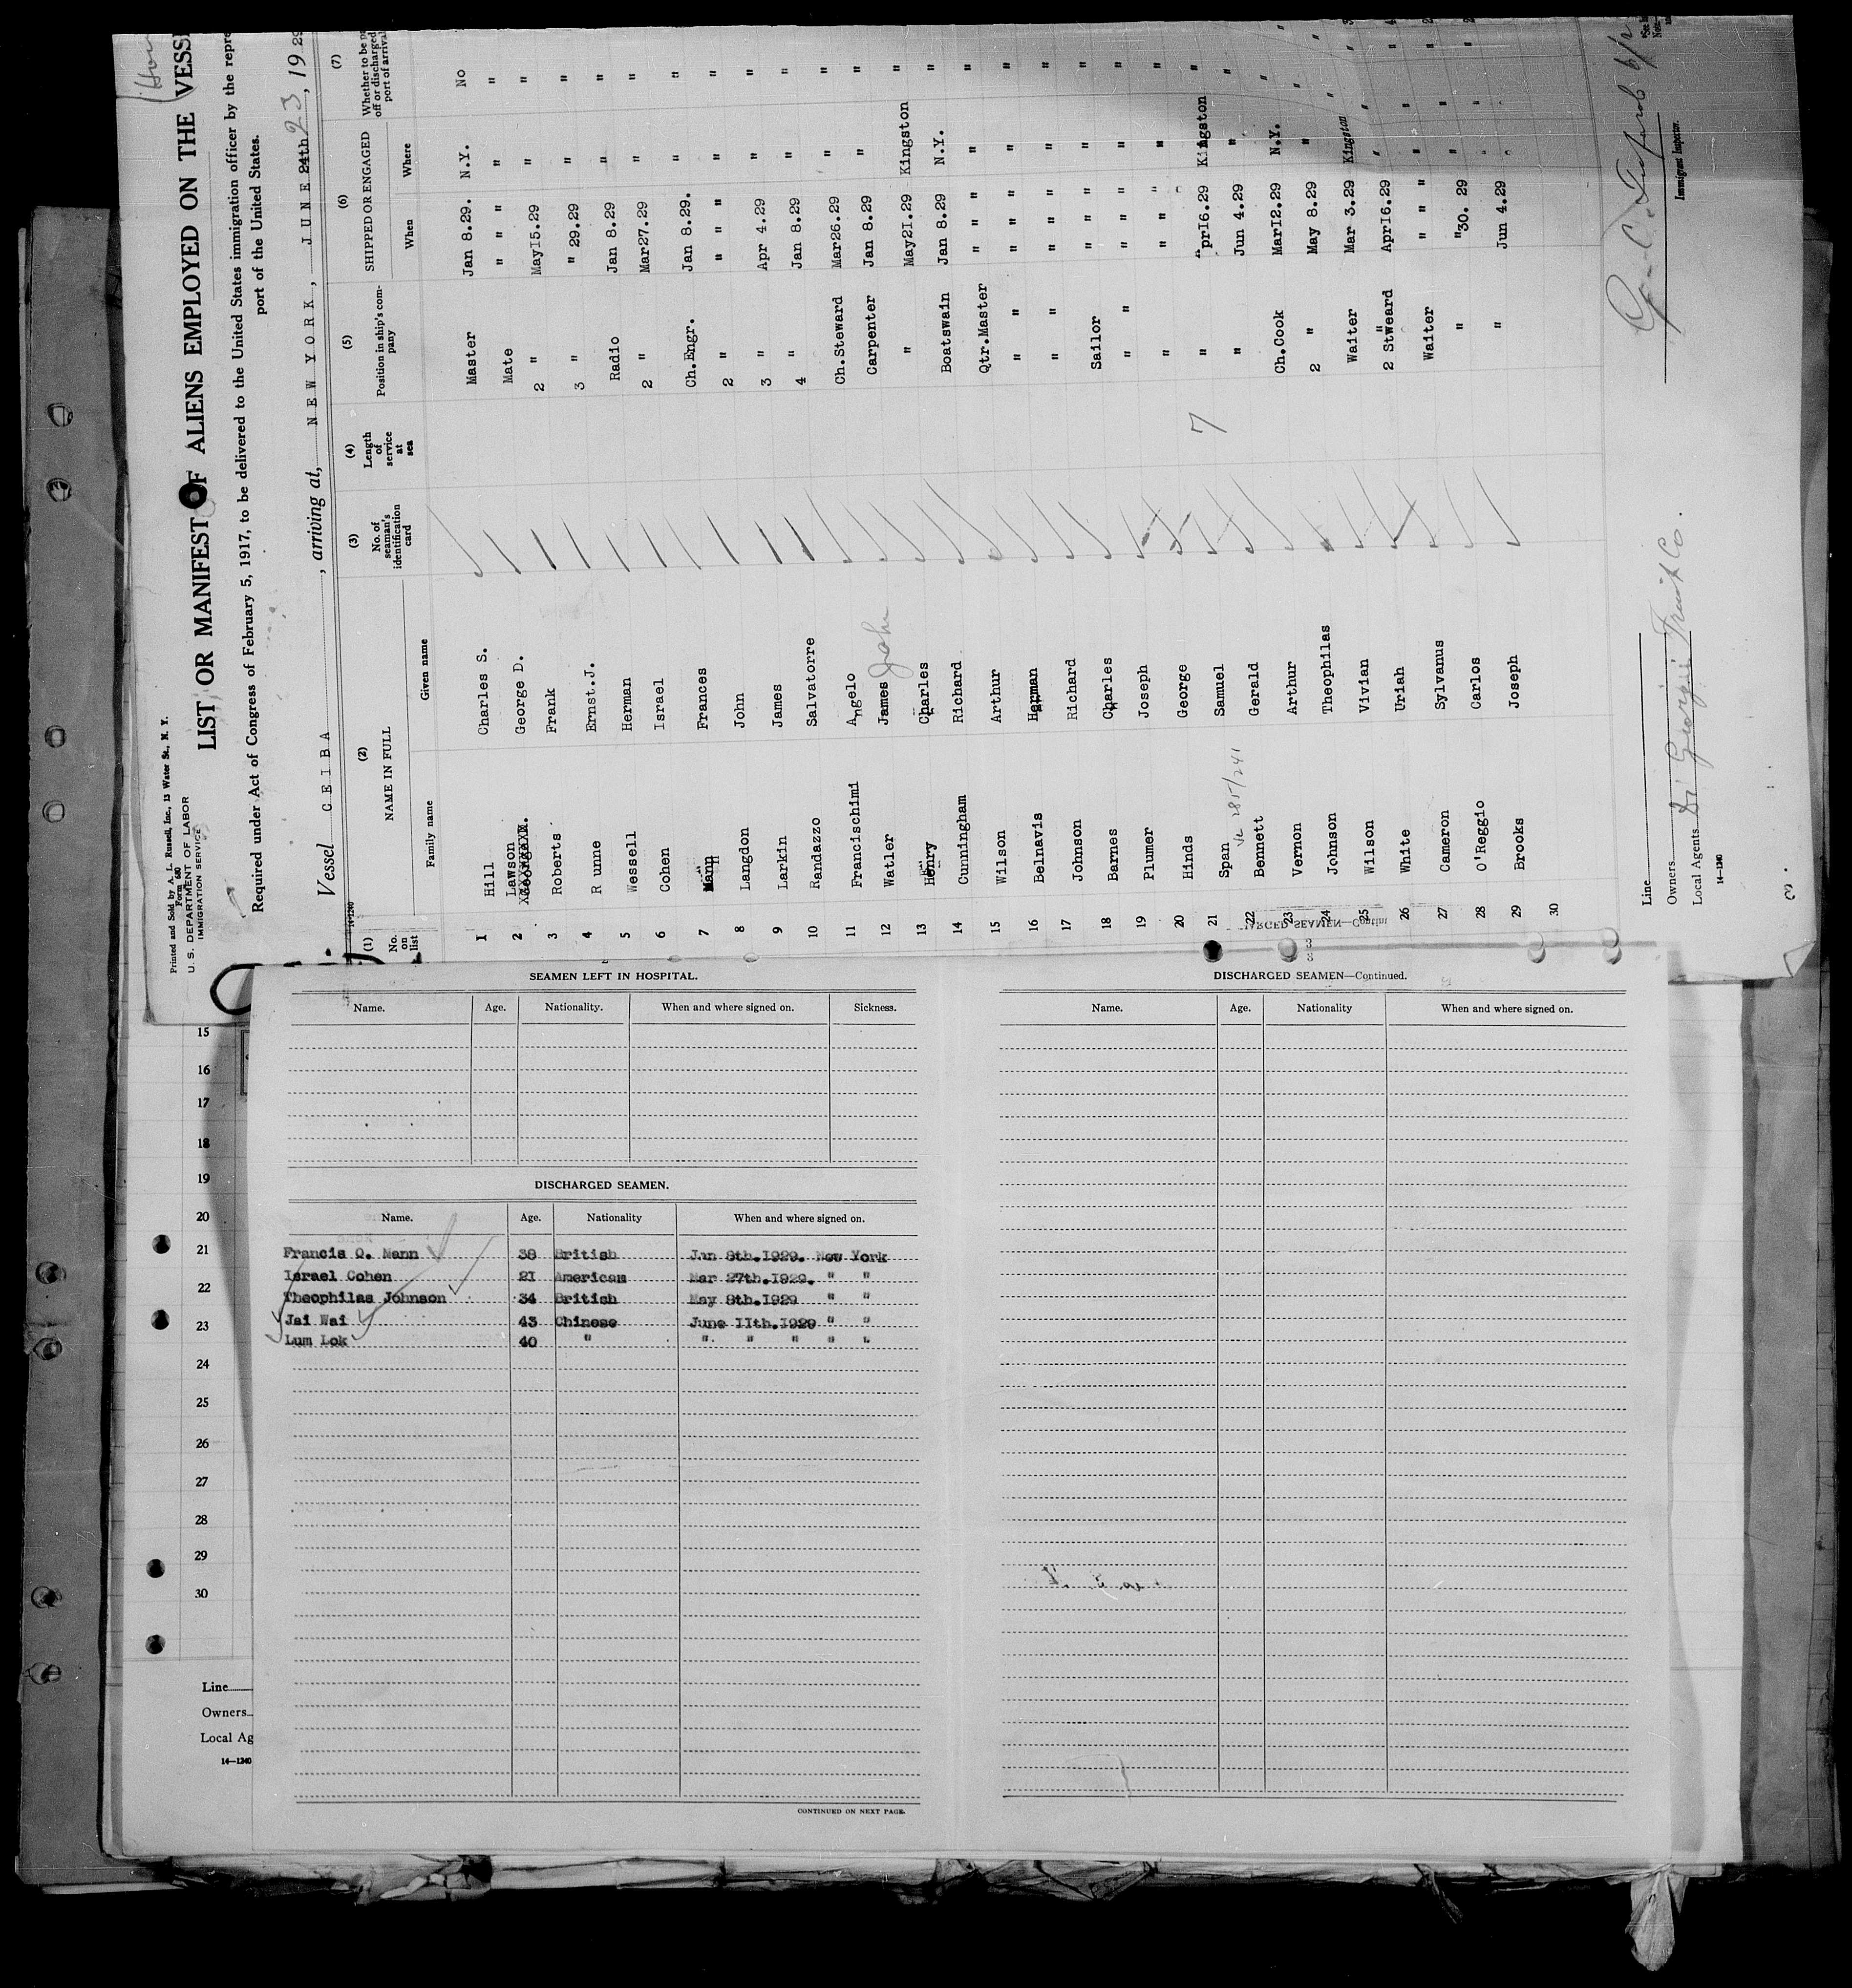 Printed and Sold by A. L. Russell, Inc., 13 Water St., N. Y.
Form 680
U. S. DEPARTMENT OF LABOR
IMMIGRATION SERVICE
LIST OR MANIFEST OF ALIENS EMPLOYED ON THE VESS
Required under Act of Congress of February 5, 1917, to be delivered to the United States immigration officer by the repre
port of the United States.
Vessel CEIBA, arriving at, NEW YORK, JUNE 24th 23, 1929
14-1240
(1) (2) (3) (4) (5) (6) (7)
No. on list NAME IN FULL No. of seaman's identification card Length of service at sea Position in ship's company SHIPPED OR ENGAGED Whether to be off or discharged port of arrival
Family name Given name When Where
1 Hill Charles S. Master Jan 8.29. N.Y. No
2 Lawson George D. Mate " " " "
3 Roberts Frank 2 " May15.29 " "
4 R unne Ernst.J. 3 " " 29.29 " "
5 Wessell Herman Radio Jan 8.29 " "
6 Cohen Israel 2 " Mar27.29 " "
7 Mann Frances Ch.Engr. Jan 8.29. " "
8 Langdon John 2 " " " " " "
9 Larkin James 3 " Apr 4.29 " "
10 Randazzo Salvatorre 4 " Jan 8.29 " "
11 Francischimi Angelo Ch.Steward Mar26.29 " "
12 Watler James John Carpenter Jan 8.29 " "
13 Henry Charles " May21.29 Kingston "
14 Cunningham Richard Boatswain Jan 8.29 N.Y. "
15 Wilson Arthur Qtr.Master " " " " "
16 Belnavis Herman " " " " " "
17 Johnson Richard " " " " " "
18 Barnes Charles Sailor " " " " "
19 Plumer Joseph " " " " " "
20 Hinds George " " " " "
21 Span Samuel 7 " "pr16.29 Kingston "
22 Bennett Gerald " Jun 4.29 " "
23 Vernon Arthur Ch.Cook Mar12.29 N.Y. "
24 Johnson Theophilas 2 " May 8.29 " "
25 Wilson Vivian Waiter Mar 3.29 Kingston "
26 White Uriah 2 Stweard Apr16.29 " "
27 Cameron Sylvanus Waiter " " " "
28 O'Reggio Carlos " "30. 29 " "
29 Brooks Joseph " Jun 4.29 "
30
Line
Owners
Local Agents Di Giorgii Fruit Co.
14-1240
Immigrant Inspector.
SEAMEN LEFT IN HOSPITAL.
Name. Age. Nationality. When and where signed on. Sickness.
DISCHARGED SEAMEN.
Name. Age. Nationality When and where signed on.
Francis Q. Mann 38 British Jan 8th.1929. New York
Israel Cohen 21 American Mar 27th.1929. " "
Theophilas Johnson 34 British May 8th.1929 " "
Jai Wai 43 Chinese June 11th.1929 " "
Lum Lok 40 " " " " " "
CONTINUED ON NEXT PAGE.
DISCHARGED SEAMEN—Continued.
Name. Age. Nationality When and where signed on.
15
16
17
18
19
20
21
22
23
24
25
26
27
28
29
30
Line
Owners
Local Ag
14—1240